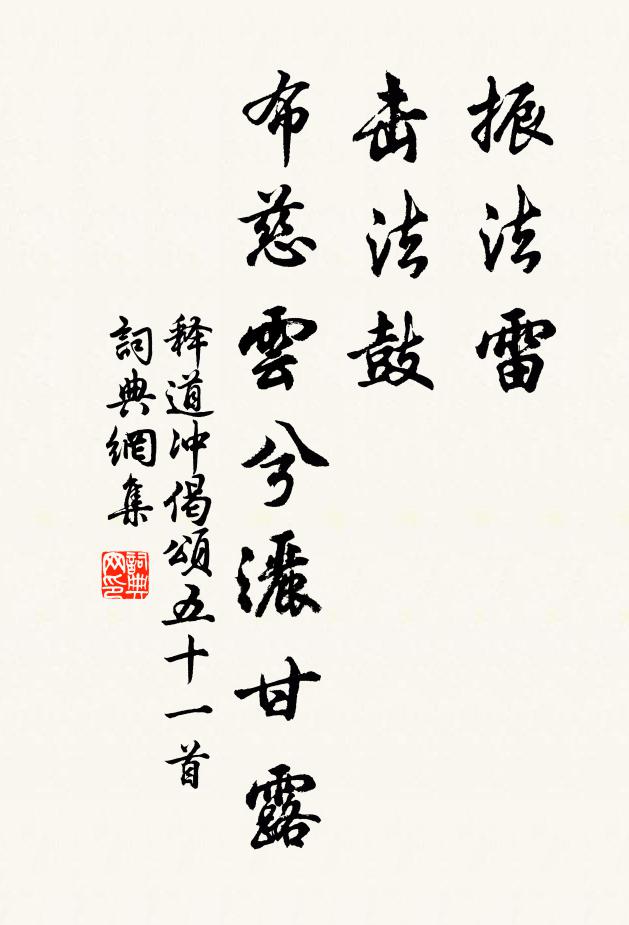 振法雷
击法鼓
布慈雲兮灑甘露
释道冲偈頌五十一首
詞典網集
詞典網印